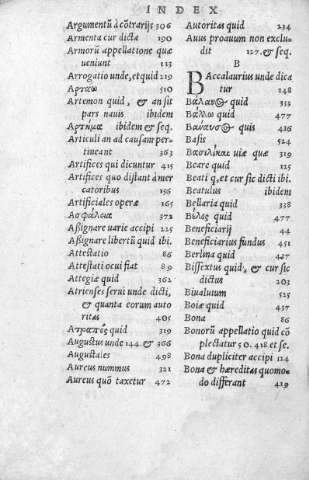 INDEX
Argumentũ à cõtrarijs 306
Armenta cur dicta 190
Armorũ appellatione quæ
ueniunt 113
Arrogatio unde, et quid 219
Αρταω 510
Artemon quid, & an sit
pars nauis ibidem
Αρτημα ibidem & seq.
Articuli an ad causam per-
tineant 363
Artifices qui dicuntur 415
Artifices quo distant à mer
catoribus 156
Artificiales operæ 165
Ασφάλεια 372
Assignare uarie accipi 225
Assignare libertũ quid ibi.
Attestatio 86
Attestati ocui fiat 89
Attegiæ quid 362
Atrienses serui unde dicti,
& quanta eorum auto
ritas 405
Ατραπὸς quid 319
Augustus unde 144. & 366
Augustales 498
Aureus nummus 321
Aureus quò taxetur 472
Autoritas quid 234
Auus proauum non exclu-
dit 127. & seq.
B
BAccalaurius unde dica
tur 148
quid 353
Βάλλω quid 477
quis 416
Basis 524
Βασιλικαὶ uiæ quæ 319
Beare quid 125
Beati q, et cur sic dicti ibi.
Beatulus ibidem
Bellaria quid 338
Βέλος quid 477
Beneficiarij 44
Beneficiarius fundus 451
Berlina quid 427
Bissextus quid, & cur sic
dictus 203
Biualuium 525
Boiæ quid 457
Bona 86
Bonorũ appellatio quid cõ
plectatur 50. 418 et se.
Bona dupliciter accipi 124
Bona & hæreditas quomo-
do differant 429